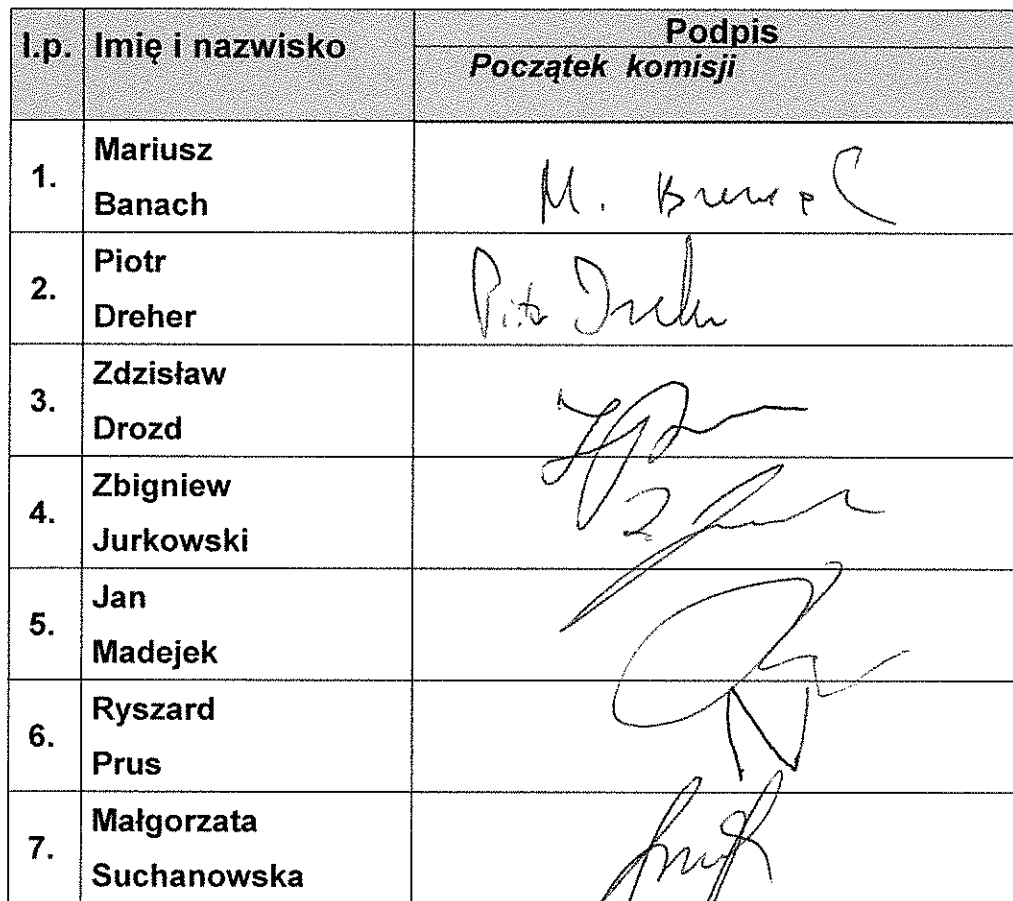 l.p. Imię i nazwisko Podpis
Początek komisji
1. Mariusz
Banach
M.
2. Piotr
Dreher
Piotr Dreher
3. Zdzisław
Drozd
4. Zbigniew
Jurkowski
5. Jan
Madejek
6. Ryszard
Prus
7. Małgorzata
Suchanowska